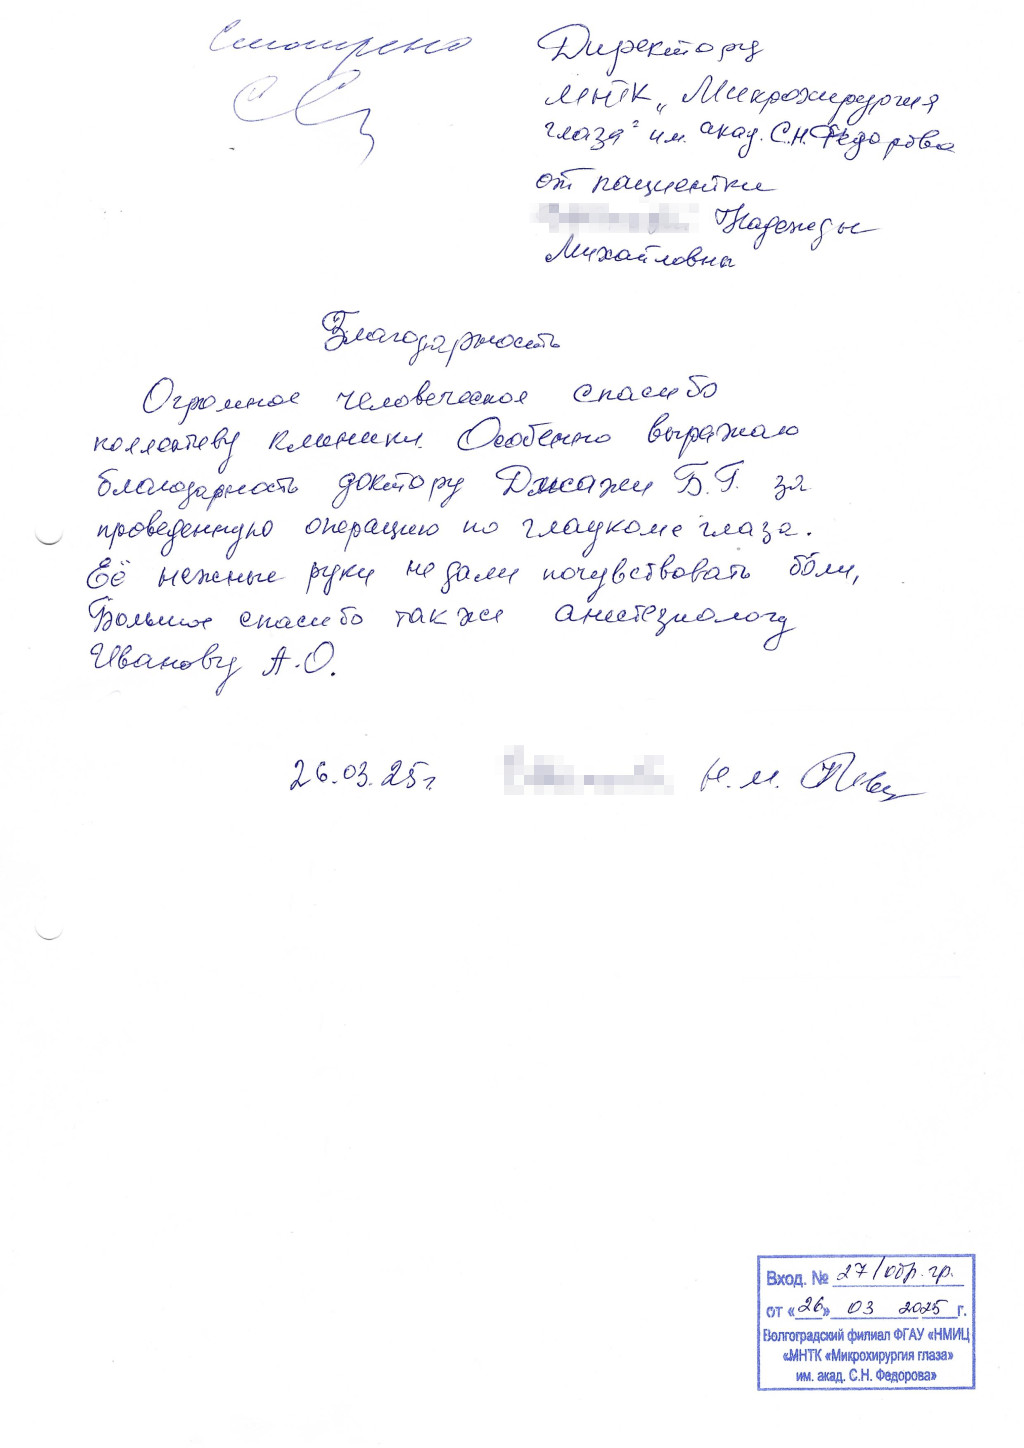 Смотрено
Директору
МНТК „Микрохирургия
глаза" им. акад. С.Н. Федорова
от пациентки
Надежды
Михайловны
Благодарность
Огромное человеческое спасибо
коллективу клиники. Особенно выражаю
благодарность доктору Джаши Б.Г. за
проведенную операцию по глаукоме глаза.
Её нежные руки не дали почувствовать боли,
Большое спасибо также анестезиологу
Иванову А.О.
26.03.25г. Н.М.
Вход. № 27/обр.гр.
от «26» 03 2025 г.
Волгоградский филиал ФГАУ «НМИЦ
«МНТК «Микрохирургия глаза»
им. акад. С.Н. Федорова»